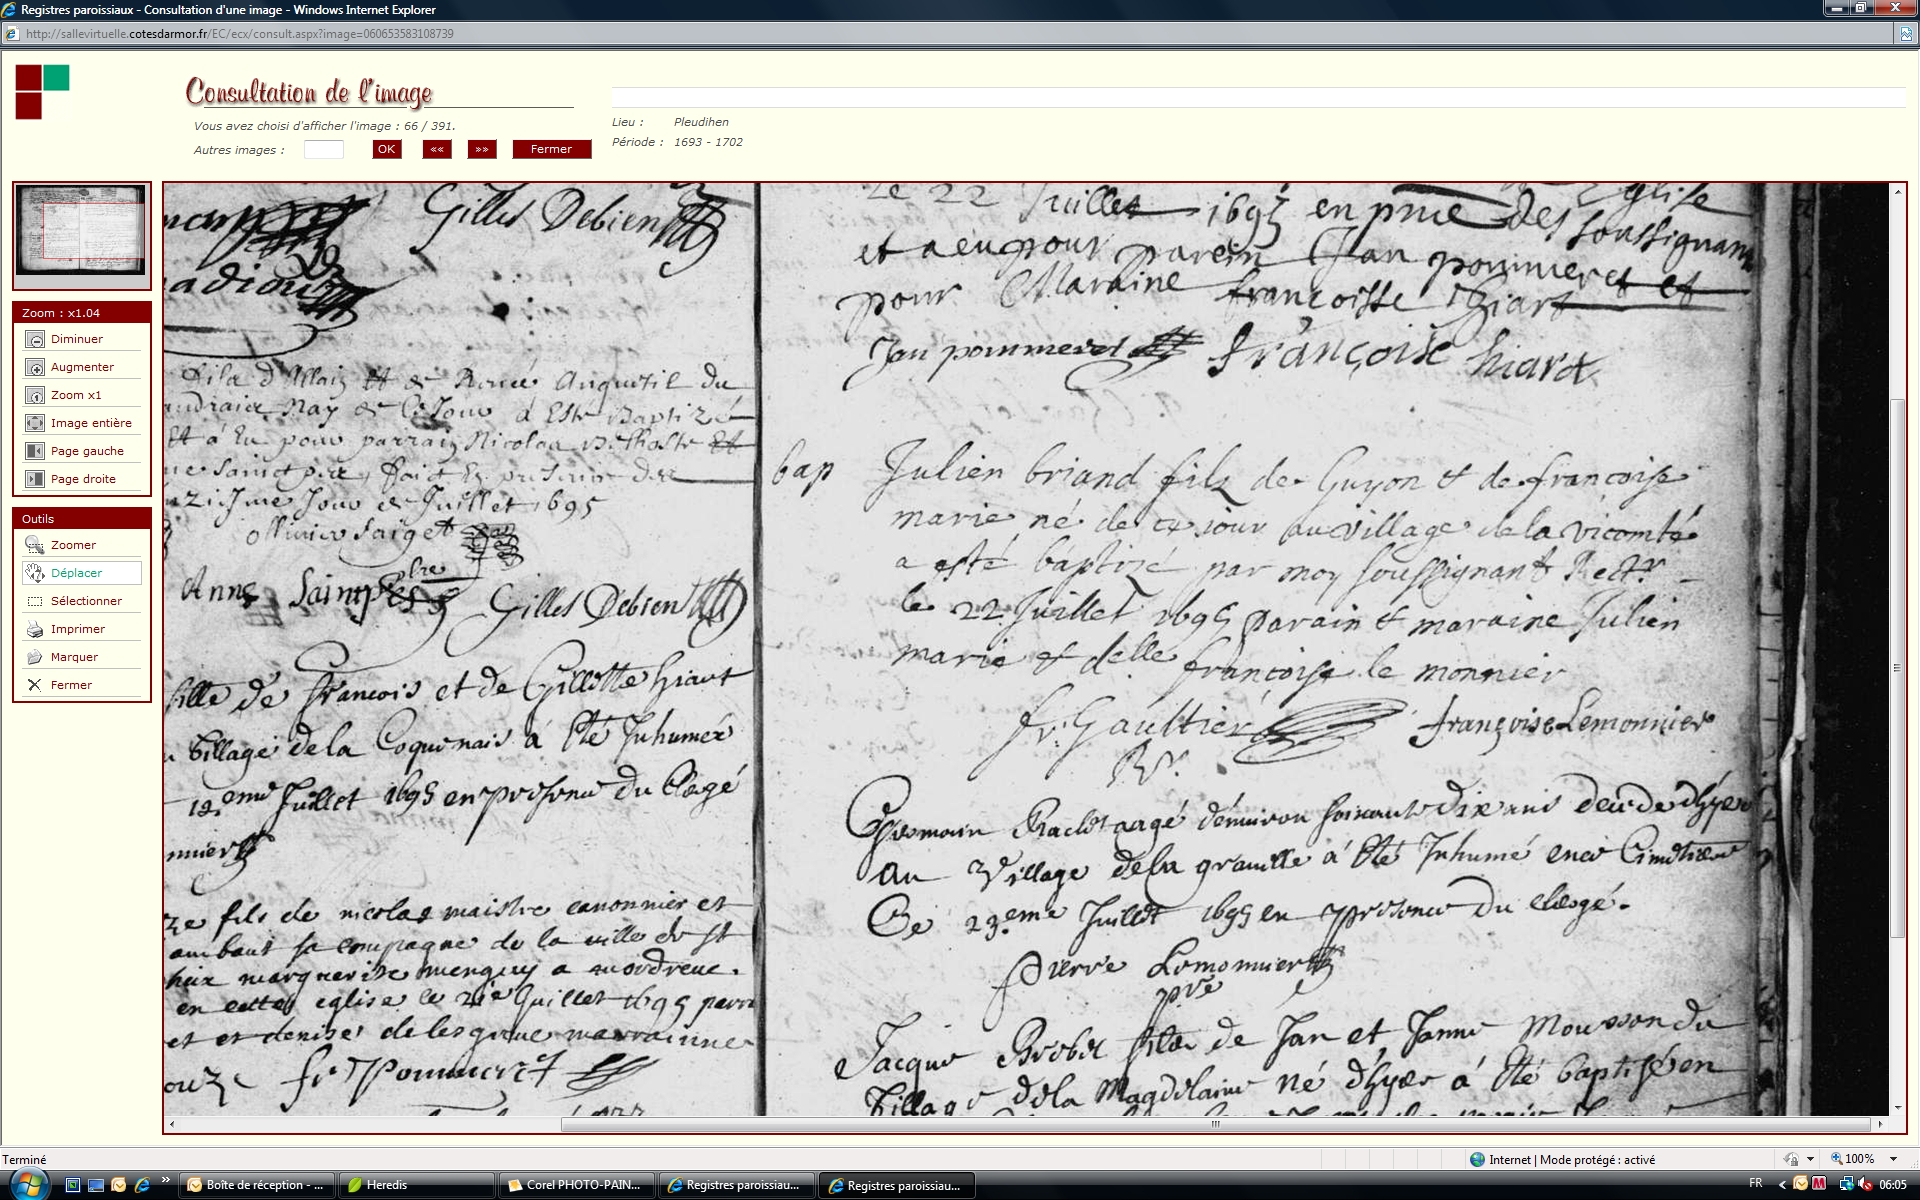 Registres paroissiaux - Consultation d'une image - Windows Internet Explorer
http://sallevirtuelle.cotesdarmor.fr/EC/ecx/consult.aspx?image=060653583108739
Consultation de l'image
Vous avez choisi d'afficher l'image : 66 / 391.
Autres images :
OK
««
»»
Fermer
Lieu : Pleudihen
Période : 1693 - 1702
Zoom : x1.04
Diminuer
Augmenter
Zoom x1
Image entière
Page gauche
Page droite
Outils
Zoomer
Déplacer
Sélectionner
Imprimer
Marquer
Fermer
Gilles Debien
fils d'Allain Et de Anquetil du
May de Ce Jour à Esté Baptizé
Et à Eu pour parrain Nicolas Et
Jour de Juillet 1695
Ollivier Saiget
Anne Gilles Debien
fille de francois et de Gillette hiart
village de la Coquenais à Eté Inhumée
12.eme Juillet 1695 en presence du Clergé
fils de nicolas maistre canonnier et
sa compagne de la ville de st
marguerite a mordreuc.
en cette eglise le 21e Juillet 1695
et denise marrainne
fr Pommeret
le 22 Juillet 1695 en des soussignans
et a eu pour parein Jan pommeret et
pour Maraine françoisse hiart
Jan pommeret françoise hiart
bap
Julien briand filz de Guyon et de françoise
marie né de ce jour au village de la vicomté
a esté baptizé par moy soussignant Rectr
le 22 Juillet 1695 parain et maraine Julien
marie et delle françoise le monnier
fr: Gaultier françoise Lemonnier
Rr.
Germain aagé d'environ soixante dix ans decedé d'hyer
au Village de la gravelle à Eté Inhumé en ce Cimetiere
Ce 23.eme Juillet 1695 en presence du clergé.
Pierre Lemonnier
pre
Jacque fils de Jan et Janne Mousson du
Village de la Magdelaine né d'hyer à Eté baptisé en
Terminé
Internet | Mode protégé : activé
100%
Boîte de réception - ...
Heredis
Corel PHOTO-PAIN...
Registres paroissiau...
Registres paroissiau...
FR
06:05